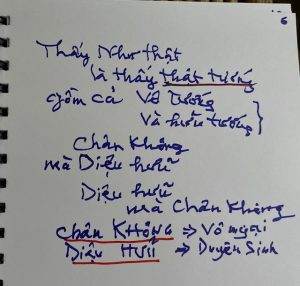 6
Thấy Như thật
là thấy thật tướng
gồm cả Vô Tướng
Và hữu tướng
Chân Không
mà Diệu hữu
Diệu hữu
mà Chân Không
Chân KHÔNG => Vô ngại
Diệu HỮU => Duyên Sinh